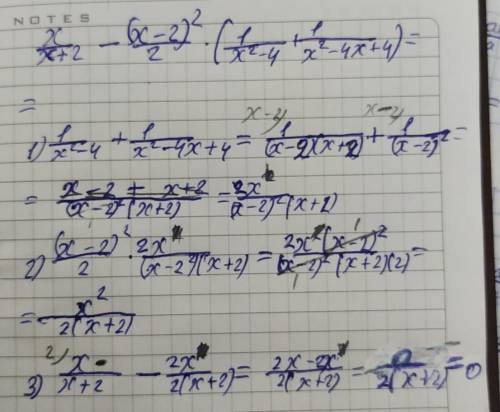 NOTES
x/(x+2) - (x-2)²/2 · (1/(x²-4) + 1/(x²-4x+4)) =
=
1) 1/(x²-4) + 1/(x²-4x+4) = x-4) 1/((x-2)(x+2)) + x-4) 1/(x-2)² =
= (x-2 + x+2)/((x-2)²(x+2)) = 2x/((x-2)²(x+2)
2) (x-2)²/2 · 2x/((x-2²)(x+2) = 2x(x-2)²/((x-2)²(x+2)(2) =
= x²/(2(x+2)
3) 2) x/(x+2) - 2x/(2(x+2) = (2x-2x)/(2(x+2) = 0/(2(x+2) = 0